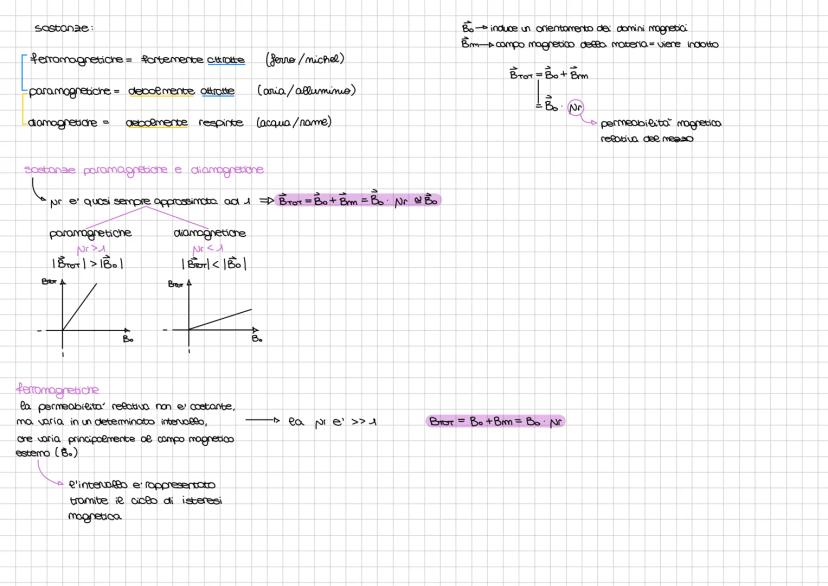 sostanze:
ferromagnetiche = fortemente attratte (ferro/nichel)
paramagnetiche = debolmente attratte (aria/alluminio)
diamagnetiche = debolmente respinte (acqua/rame)
B⃗₀ → induce un orientamento dei domini magnetici
B⃗m → campo magnetico della materia = viene indotto
B⃗TOT = B⃗₀ + B⃗m
= B⃗₀ · μr
permeabilità magnetica
relativa del mezzo
sostanze paramagnetiche e diamagnetiche
μr e' quasi sempre approssimata ad 1 ⇒ B⃗TOT = B⃗₀ + B⃗m = B⃗₀ · μr ≅ B⃗₀
paramagnetiche
μr > 1
|B⃗TOT| > |B⃗₀|
BTOT
B₀
diamagnetiche
μr < 1
|B⃗TOT| < |B⃗₀|
BTOT
B₀
ferromagnetiche
la permeabilità relativa non e' costante,
ma varia in un determinato intervallo,
che varia principalmente al campo magnetico
esterno (B⃗₀)
→ la μr e' >> 1
BTOT = B₀ + Bm = B₀ · μr
l'intervallo e' rappresentato
tramite il ciclo di isteresi
magnetica